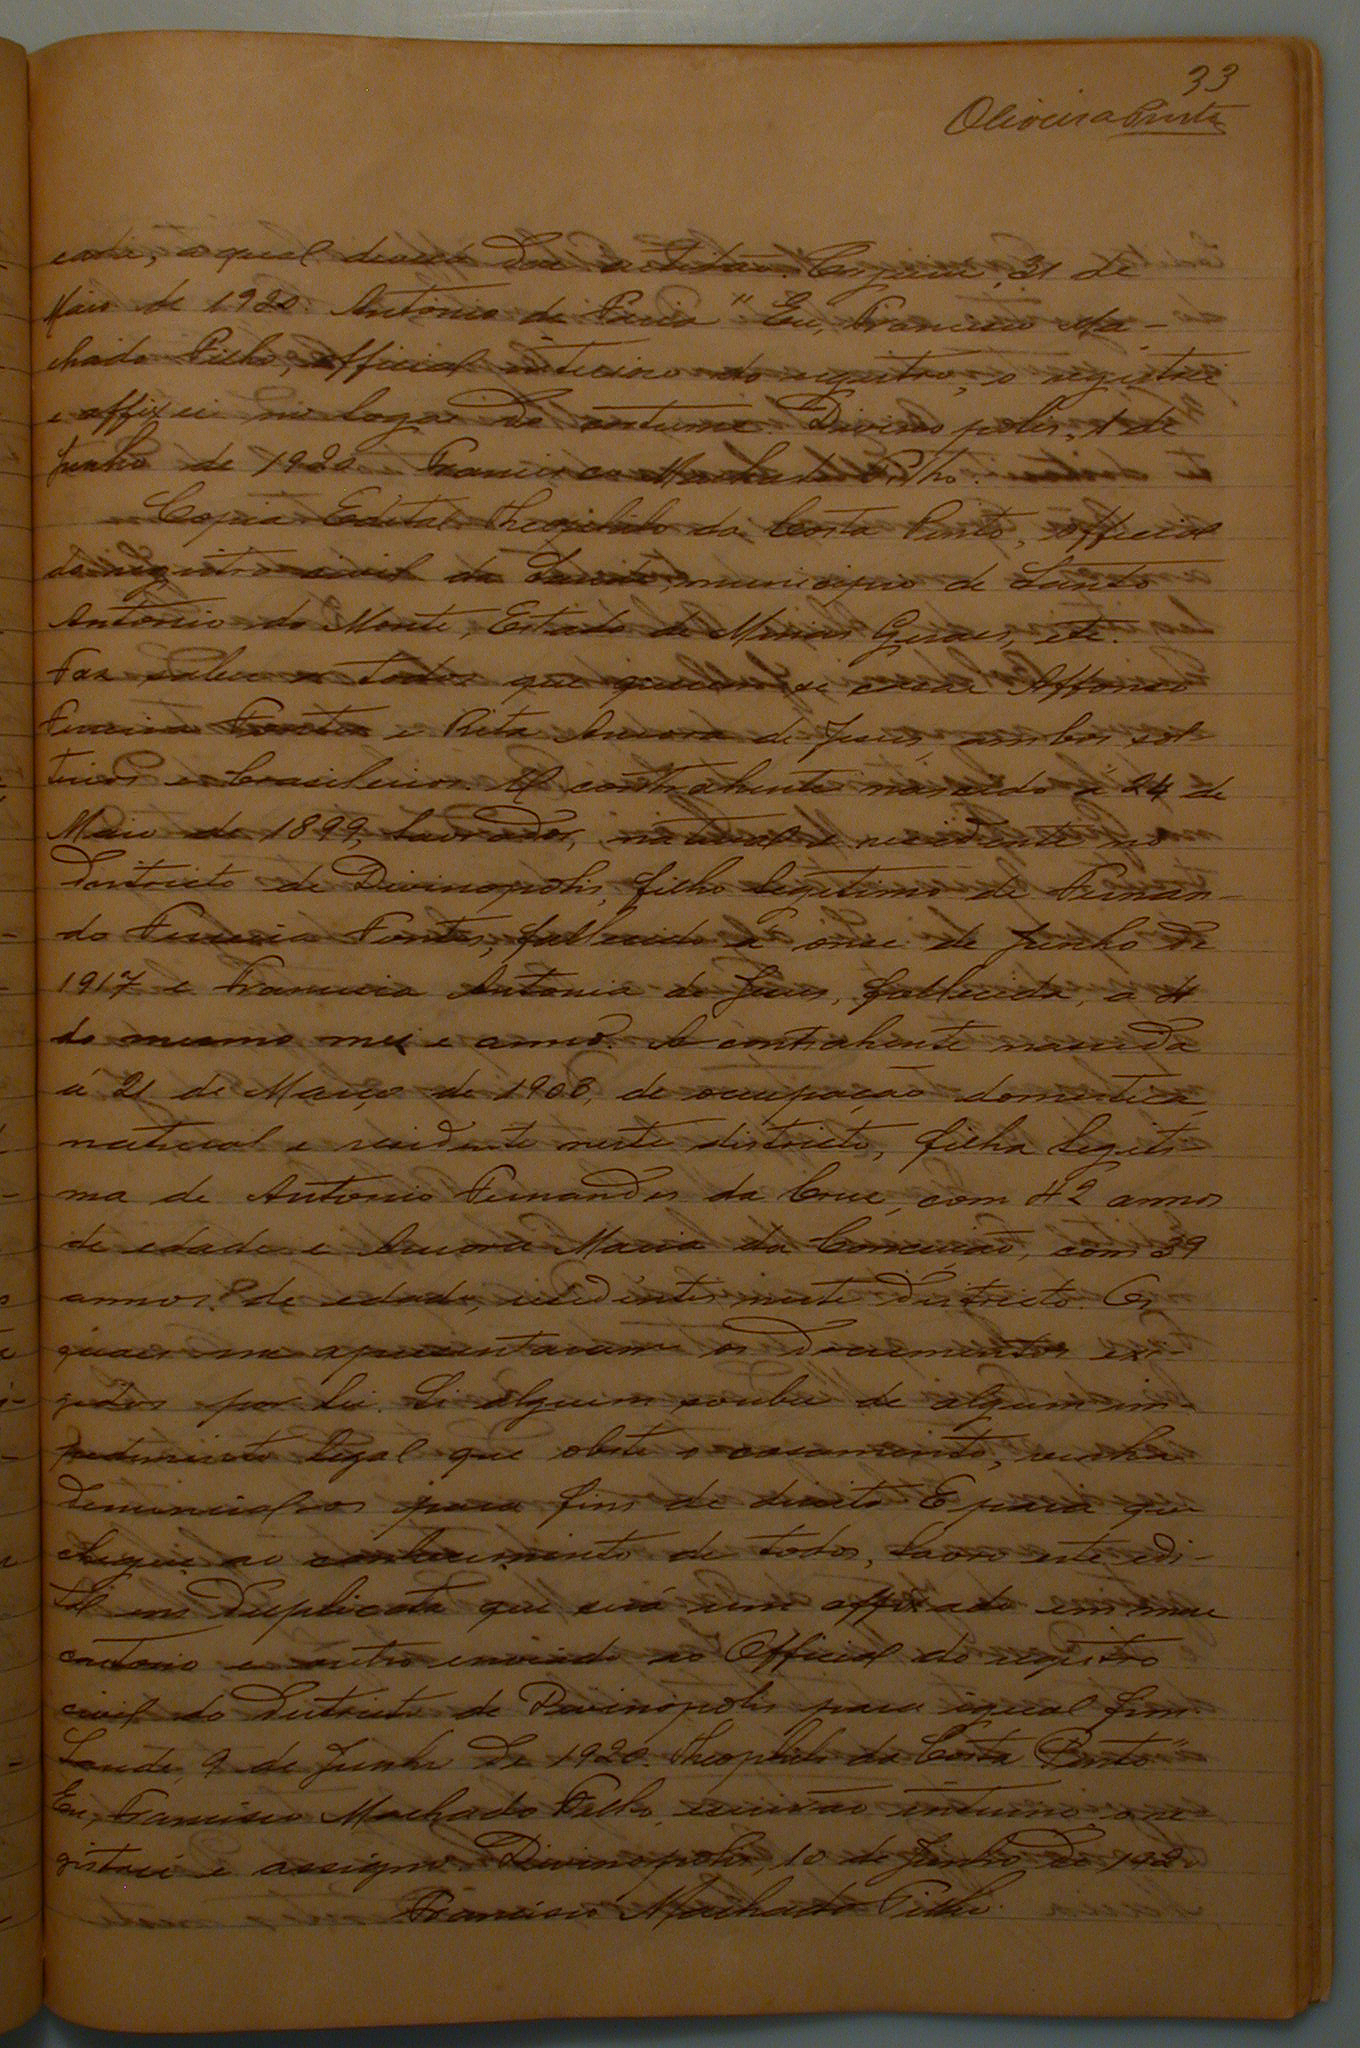 33
Oliveira Preste
cada, a qual devera dar certidão. Cajuru, 31 de
Maio de 1920. Antonio de Faria" Eu, Francisco Ma-
chado Filho, official interino do registro, o registrei
e affixei no logar do costume. Divinopolis, 1 de
Junho de 1920. Francisco Machado Filho.
Copia. Edital. Theophilo da Costa Pinto, official
do registro civil da Saude, municipio de Santo
Antonio do Monte, Estado de Minas Geraes, etc.
Faz saber a todos que querem se casar Affonso
Ferreira Fontes e Rita Aurora de Jesus, ambos sol-
teiros e brasileiros. O contrahente nascido á 24 de
Maio de 1899, lavrador, natural e residente no
districto de Divinopolis, filho legitimo de Fernan-
do Ferreira Fontes, fallecido á onze de Junho de
1917 e Francisca Antonia de Jesus, fallecida, a 4
do mesmo mez e anno. A contrahente nascida
á 21 de Março de 1903, de occupação domestica,
natural e residente neste districto, filha legiti-
ma de Antonio Fernandes da Cruz, com 42 annos
de edade e Aurora Maria da Conceição, com 39
annos de edade, residentes neste districto. Os
quaes me apresentaram os documentos exi-
gidos por lei. Si alguem souber de algum im-
pedimento legal que obste o casamento, venha
denuncial-os para fins de direito. E para que
chegue ao conhecimento de todos, lavro este edi-
tal em duplicata que será um affixado em meu
cartorio e outro enviado ao Official do registro
civil do districto de Divinopolis para igual fim.
Saude, 9 de Junho de 1920. Theophilo da Costa Pinto"
Eu, Francisco Machado Filho, escrivão interino, o re-
gistrei e assigno. Divinopolis, 10 de Junho de 1920
Francisco Machado Filho.